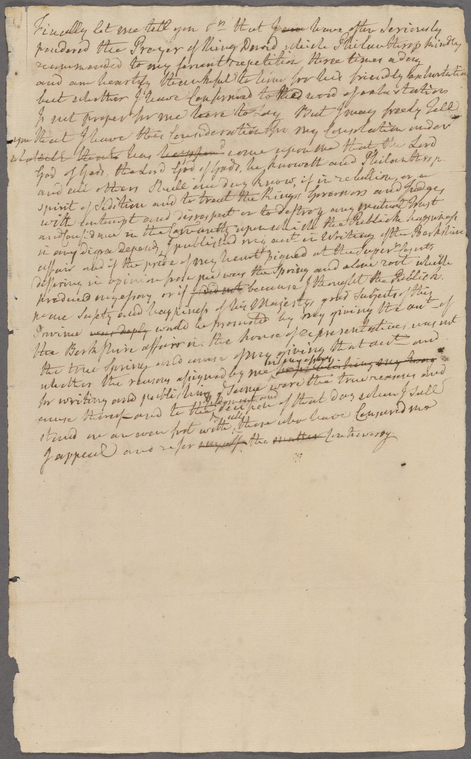 Finally let me tell you Sr. that I have often Seriously
pondered the Prayer of King David which Philanthrop kindly
recommended to my serious repetition three times a day
and am heartily thankful to him for his friendly Exhortation
but whether I have Conformed to the word of exhortation
is not proper for me to Say But I may freely tell
upon that I have this Consideration for my Consolation under
what has come upon me that the Lord
God of Gods, the Lord God of Gods, he knoweth and Philanthrop
and all others Shall one day know, if in rebellion, or a
Spirit of Sedition and to treat the Kings Governors and Judges
with Contempt and disrespect or to destroy any mutual Trust
and Confidence in the Servants upon which the Publick happiness
in any degree depends, I published my in Writing of the Berkshire
affair and if the pride of my heart piqued at the Superior Courts
differing in opinion from me was the Spring and alone root which
produced my essay, or if because I thought the Publick
peace Safety and happiness of his Majestys good Subjects of this
Province would be promoted by my giving the act of
the Berkshire affair in the house of representatives, was not
the true Spring and cause of my giving that act and
whether the reasons assigned by me in my essay
for writing and publishing the Same were the true reasons and
cause thereof and to the of that day when I Shall
stand on an even foot with those who have Censured me
I appeal and refer the Controversy